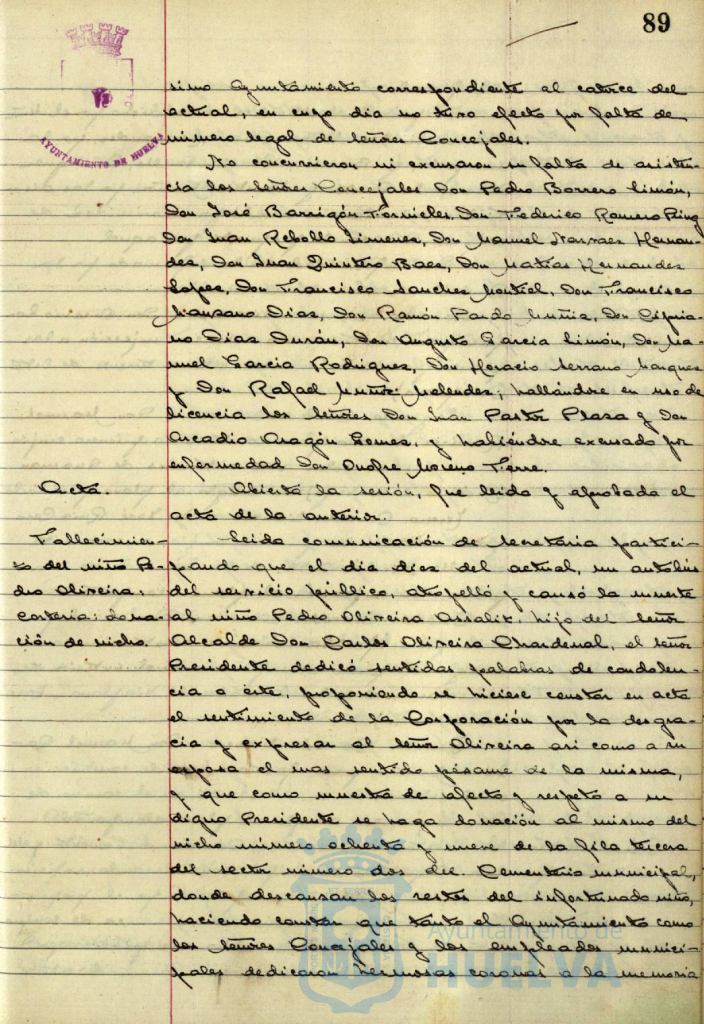 89
AYUNTAMIENTO DE HUELVA
simo Ayuntamiento correspondiente al catorce del
actual, en cuyo dia no tuvo efecto por falta de
número legal de señores Concejales.
No concurrieron ni excusaron su falta de asisten-
cia los señores Concejales Don Pedro Borrero Limón,
Don José Barrigón Fornieles, Don Federico Romero
Don Juan Rebollo Jimenez, Don Manuel Narvaez Hernan-
dez, Don Juan Quintero Baez, Don Matías Hernandez
Lopez, Don Francisco Sanchez Montiel, Don Francisco
Manzano Dias, Don Ramón Pardo Don Cipria-
no Dias Durán, Don Augusto Garcia Limón, Don Ma-
nuel Garcia Rodriguez, Don Horacio Serrano Marquez
y Don Rafael Muñiz Melendez; hallándose en uso de
licencia los señores Don Juan Pastor Plaza y Don
Arcadio Aragón Gomez, y habiéndose excusado por
enfermedad Don Onofre Moreno Tierre.
Acta.
Abierta la sesión, fue leida y aprobada el
acta de la anterior.
Fallecimien-
to del niño Pe-
dro Oliveira:
cortería: dona-
ción de nicho.
Leida comunicación de Secretaria partici-
pando que el dia diez del actual, un autobús
del servicio público, atropelló y causó la muerte
al niño Pedro Oliveira hijo del señor
Alcalde Don Carlos Oliveira Chardenal, el señor
Presidente dedicó sentidas palabras de condolen-
cia a éste, proponiendo se hiciese constar en acta
el sentimiento de la Corporación por la desgra-
cia y expresar al señor Oliveira asi como a su
esposa el mas sentido pésame de la misma,
y que como muestra de afecto y respeto a su
digno Presidente se haga donación al mismo del
nicho número ochenta y nueve de la fila tercera
del sector número dos del Cementerio municipal,
donde descansan los restos del infortunado niño,
haciendo constar que tanto el Ayuntamiento como
los señores Concejales y los empleados munici-
pales dedicaron hermosas coronas a la memoria
Ayuntamiento de
HUELVA